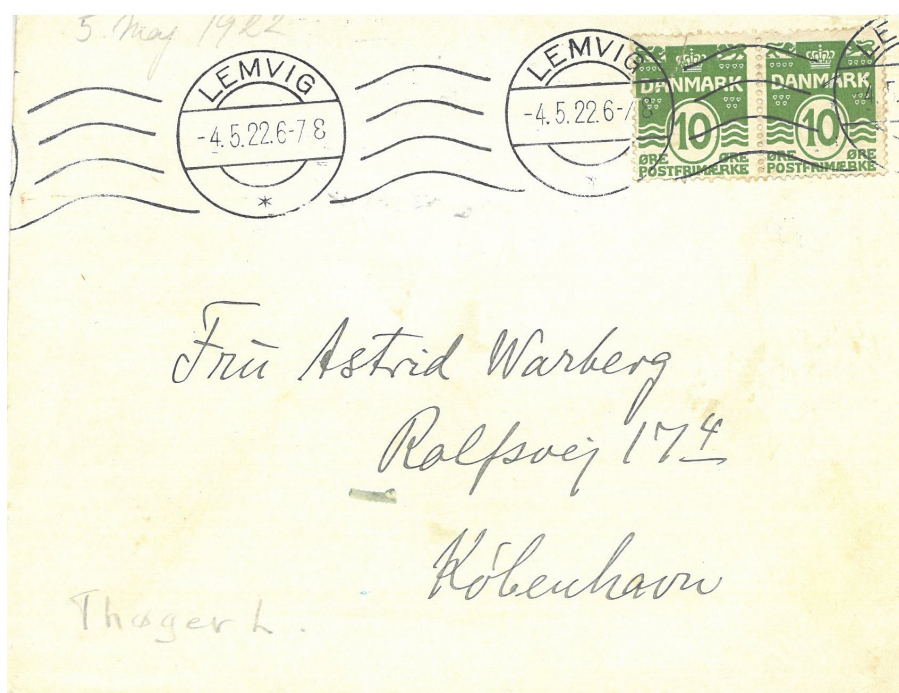 5. Maj 1922
LEMVIG
-4.5.22.6-7 8
LEMVIG
-4.5.22.6-7
DANMARK
10
ØRE ØRE
POSTFRIMÆRKE
DANMARK
10
ØRE ØRE
POSTFRIMÆRKE
LE
Fru Astrid Warberg
Rolfsvej 17 4
København
Thøger L.